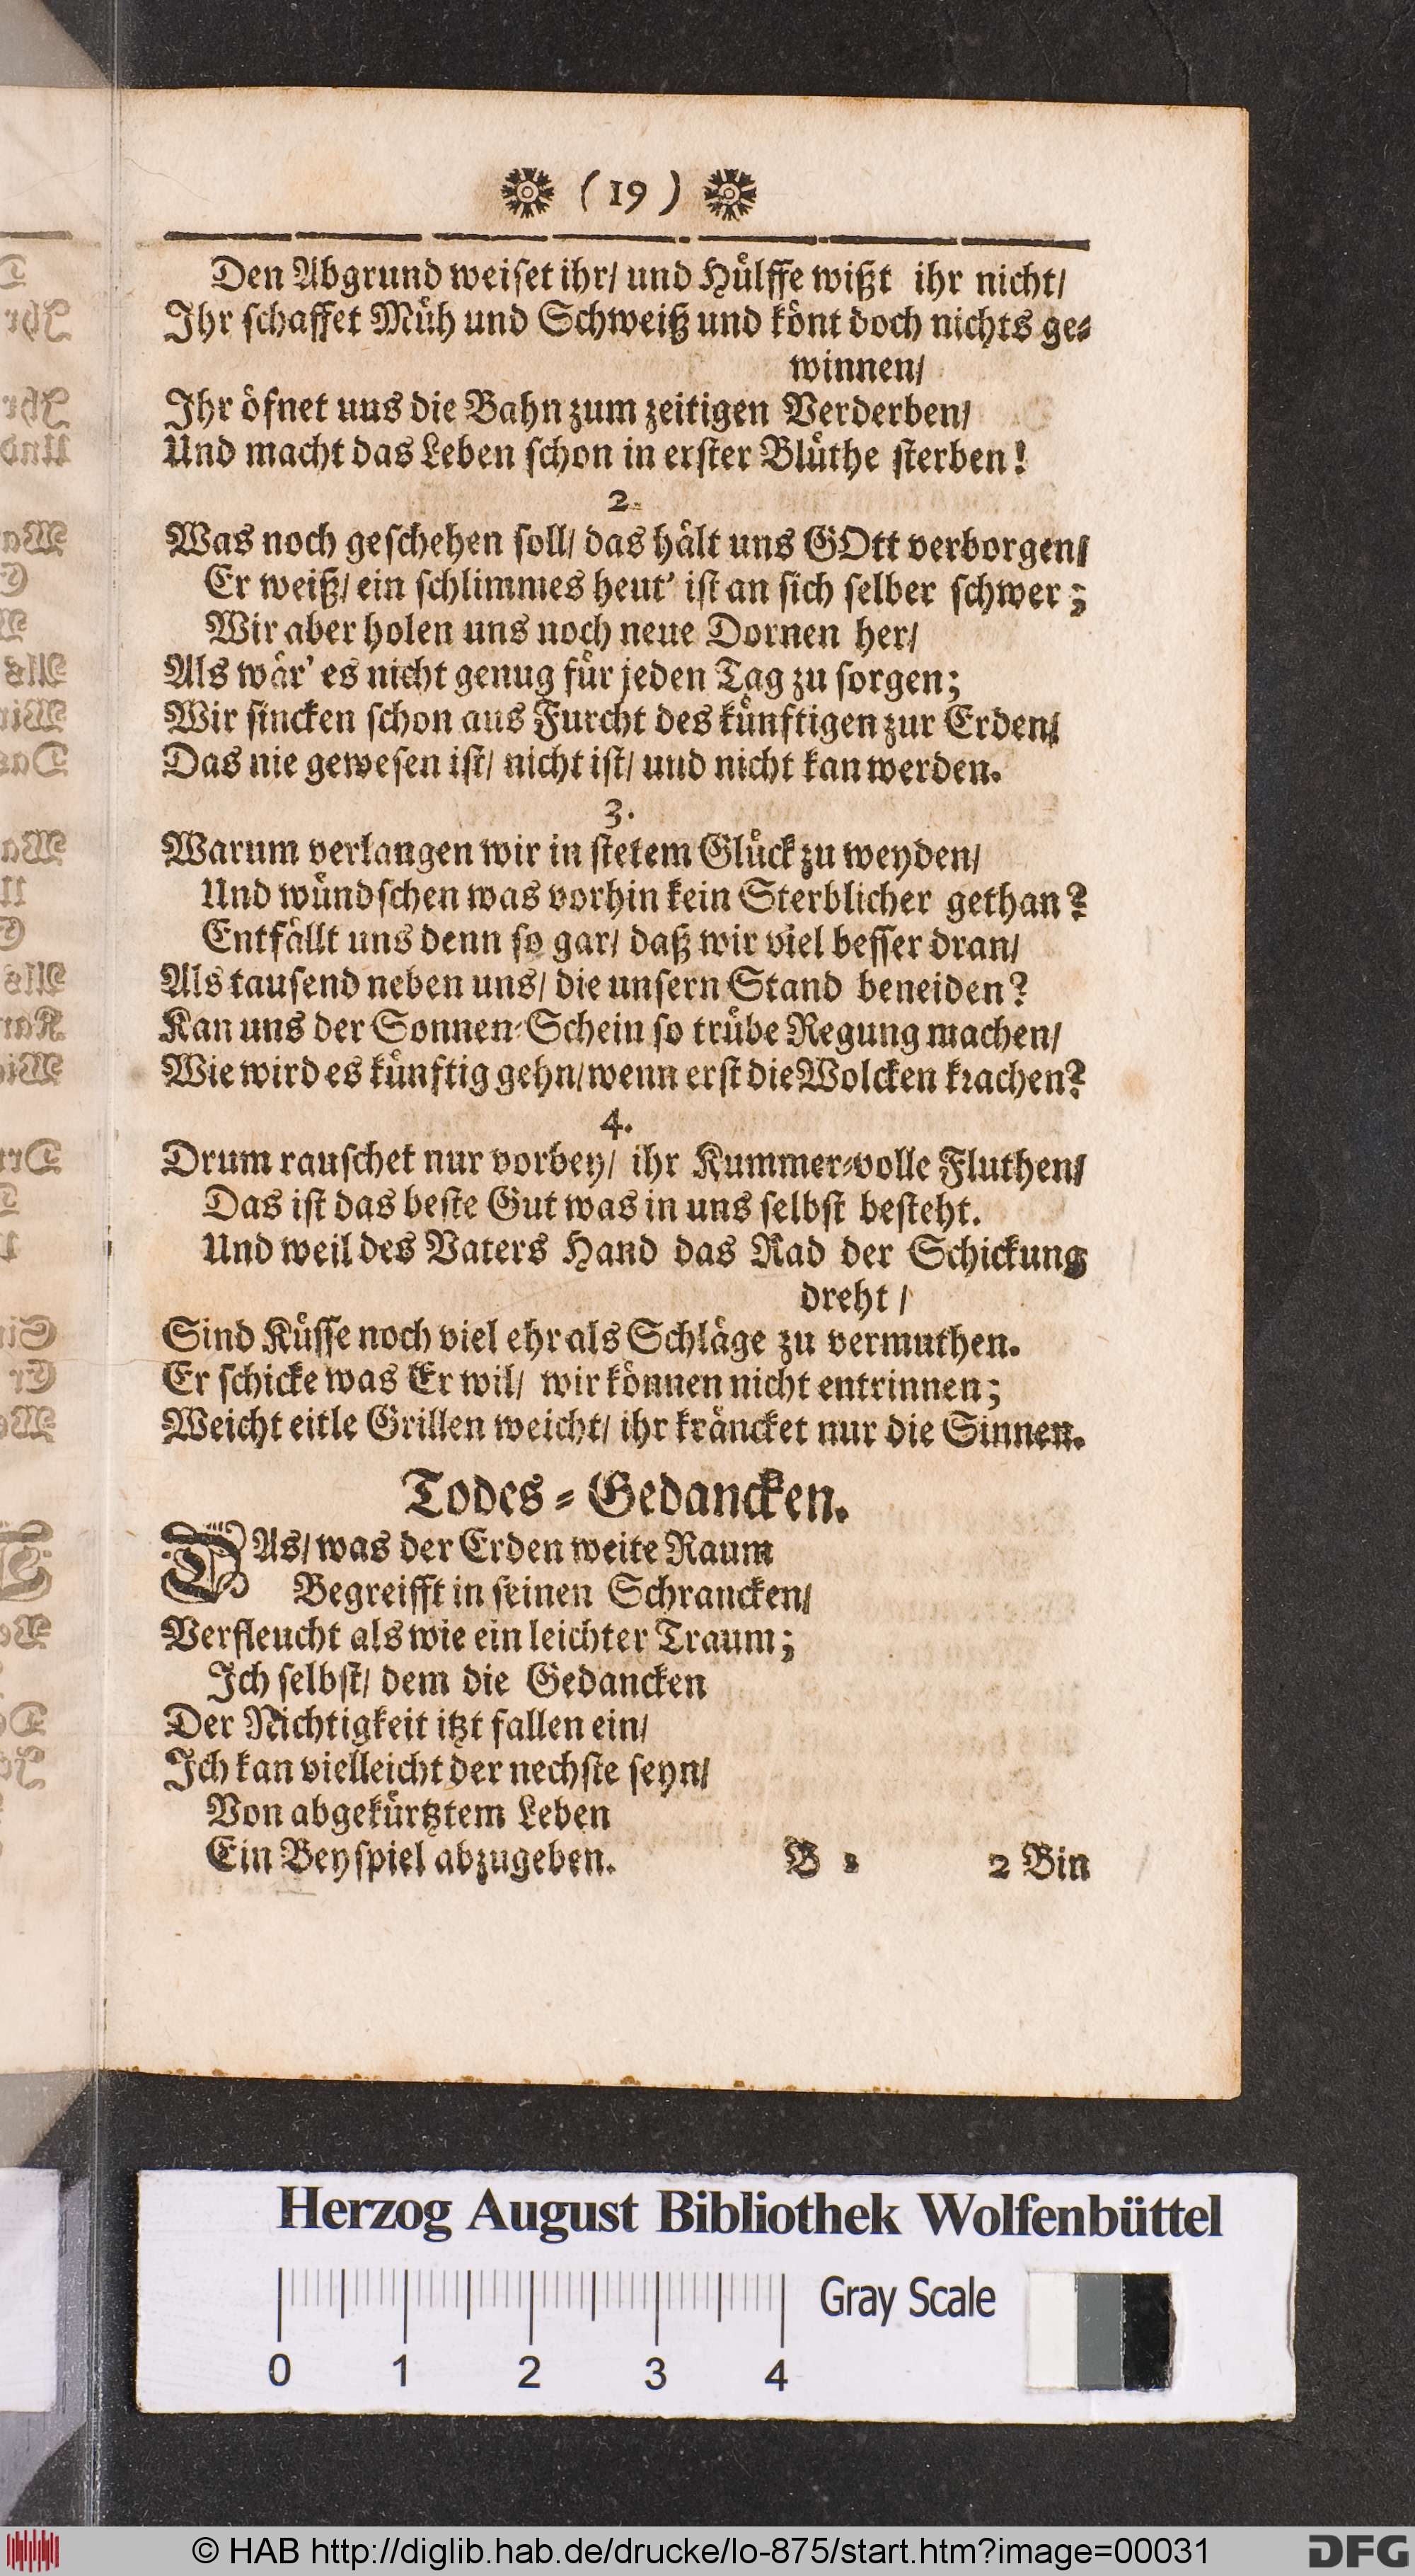 ( 19 )
Den Abgrund weiſet ihr/ und Huͤlffe wißt ihr nicht/
Ihr ſchaffet Muͤh und Schweiß und koͤnt doch nichts ge⸗
winnen/
Ihr oͤfnet uns die Bahn zum zeitigen Verderben/
Und macht das Leben ſchon in erſter Bluͤthe ſterben!
2.
Was noch geſchehen ſoll/ das haͤlt uns GOtt verborgen/
Er weiß/ ein ſchlimmes heut' iſt an ſich ſelber ſchwer;
Wir aber holen uns noch neue Dornen her/
Als waͤr' es nicht genug fuͤr jeden Tag zu ſorgen;
Wir ſincken ſchon aus Furcht des kuͤnftigen zur Erden/
Das nie geweſen iſt/ nicht iſt/ und nicht kan werden.
3.
Warum verlangen wir in ſtetem Gluͤck zu weyden/
Und wuͤndſchen was vorhin kein Sterblicher gethan?
Entfaͤllt uns denn ſo gar/ daß wir viel beſſer dran/
Als tauſend neben uns/ die unſern Stand beneiden?
Kan uns der Sonnen⸗Schein ſo truͤbe Regung machen/
Wie wird es kuͤnftig gehn/wenn erſt die Wolcken krachen?
4.
Drum rauſchet nur vorbey/ ihr Kummer⸗volle Fluthen/
Das iſt das beſte Gut was in uns ſelbſt beſteht.
Und weil des Vaters Hand das Rad der Schickung
dreht /
Sind Kuͤſſe noch viel ehr als Schlaͤge zu vermuthen.
Er ſchicke was Er wil/ wir koͤnnen nicht entrinnen;
Weicht eitle Grillen weicht/ ihr kraͤncket nur die Sinnen.
Todes⸗Gedancken.
DAs/ was der Erden weite Raum
Begreifft in ſeinen Schrancken/
Verfleucht als wie ein leichter Traum;
Ich ſelbſt/ dem die Gedancken
Der Nichtigkeit itzt fallen ein/
Ich kan vielleicht der nechſte ſeyn/
Von abgekuͤrtztem Leben
Ein Beyſpiel abzugeben.
B 2 2 Bin
Herzog August Bibliothek Wolfenbüttel
Gray Scale
0 1 2 3 4
© HAB http://diglib.hab.de/drucke/lo-875/start.htm?image=00031
DFG